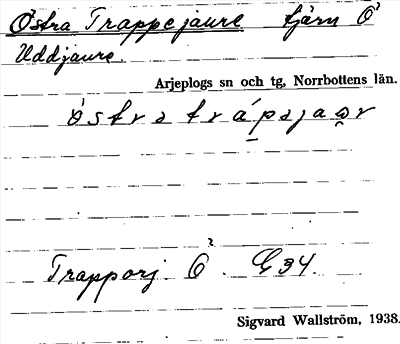 Östra Trappejaure tjärn Ö
Uddjaure.
Arjeplogs sn och tg, Norrbottens län.
östra trápajaər
Trapporj Ö. G34.
Sigvard Wallström, 1938.